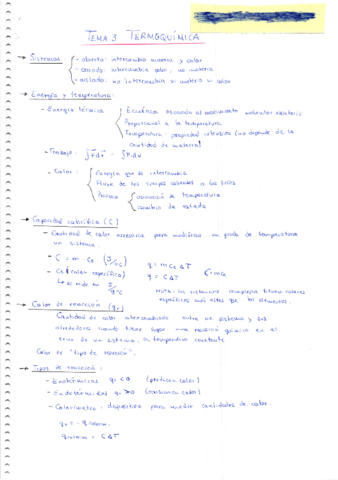 TEMA 3 TERMOQUÍMICA
→ Sistemas - abierto: intercambia materia y calor
- cerrado: intercambia calor, no materia
- aislado: no intercambia ni materia ni calor
→ Energía y temperatura:
- Energía térmica Ecinética asociada al movimiento molecular aleatorio
Proporcional a la temperatura
Temperatura: propiedad intensiva (no depende de la
cantidad de materia)
- Trabajo: ∫F dx = ∫P·dV
- Calor: Energía que se intercambia
Fluye de los cuerpos calientes a los fríos
Provoca variación de temperatura
cambio de estado
→ Capacidad calorífica (C)
- Cantidad de calor necesaria para modificar un grado de temperatura
un sistema.
- C = m · ce (J/ºC) q = m ce ΔT C = m ce
- ce (calor específico) q = C ΔT
↳ se mide en J/gºC NOTA: los
específicos más altos que los elementos.
→ Calor de reacción (qr)
Cantidad de calor intercambiado entre un sistema y sus
alrededores cuando tiene lugar una reacción química en el
seno de un sistema, a temperatura constante
Calor es "tipo de reacción".
→ Tipos de reacción:
- Exotérmicas qr < 0 (producen calor)
- Endotérmicas qr > 0 (consumen calor)
- Calorímetro: dispositivo para medir cantidades de calor.
qr = - qcalorim.
qcalorim = C ΔT